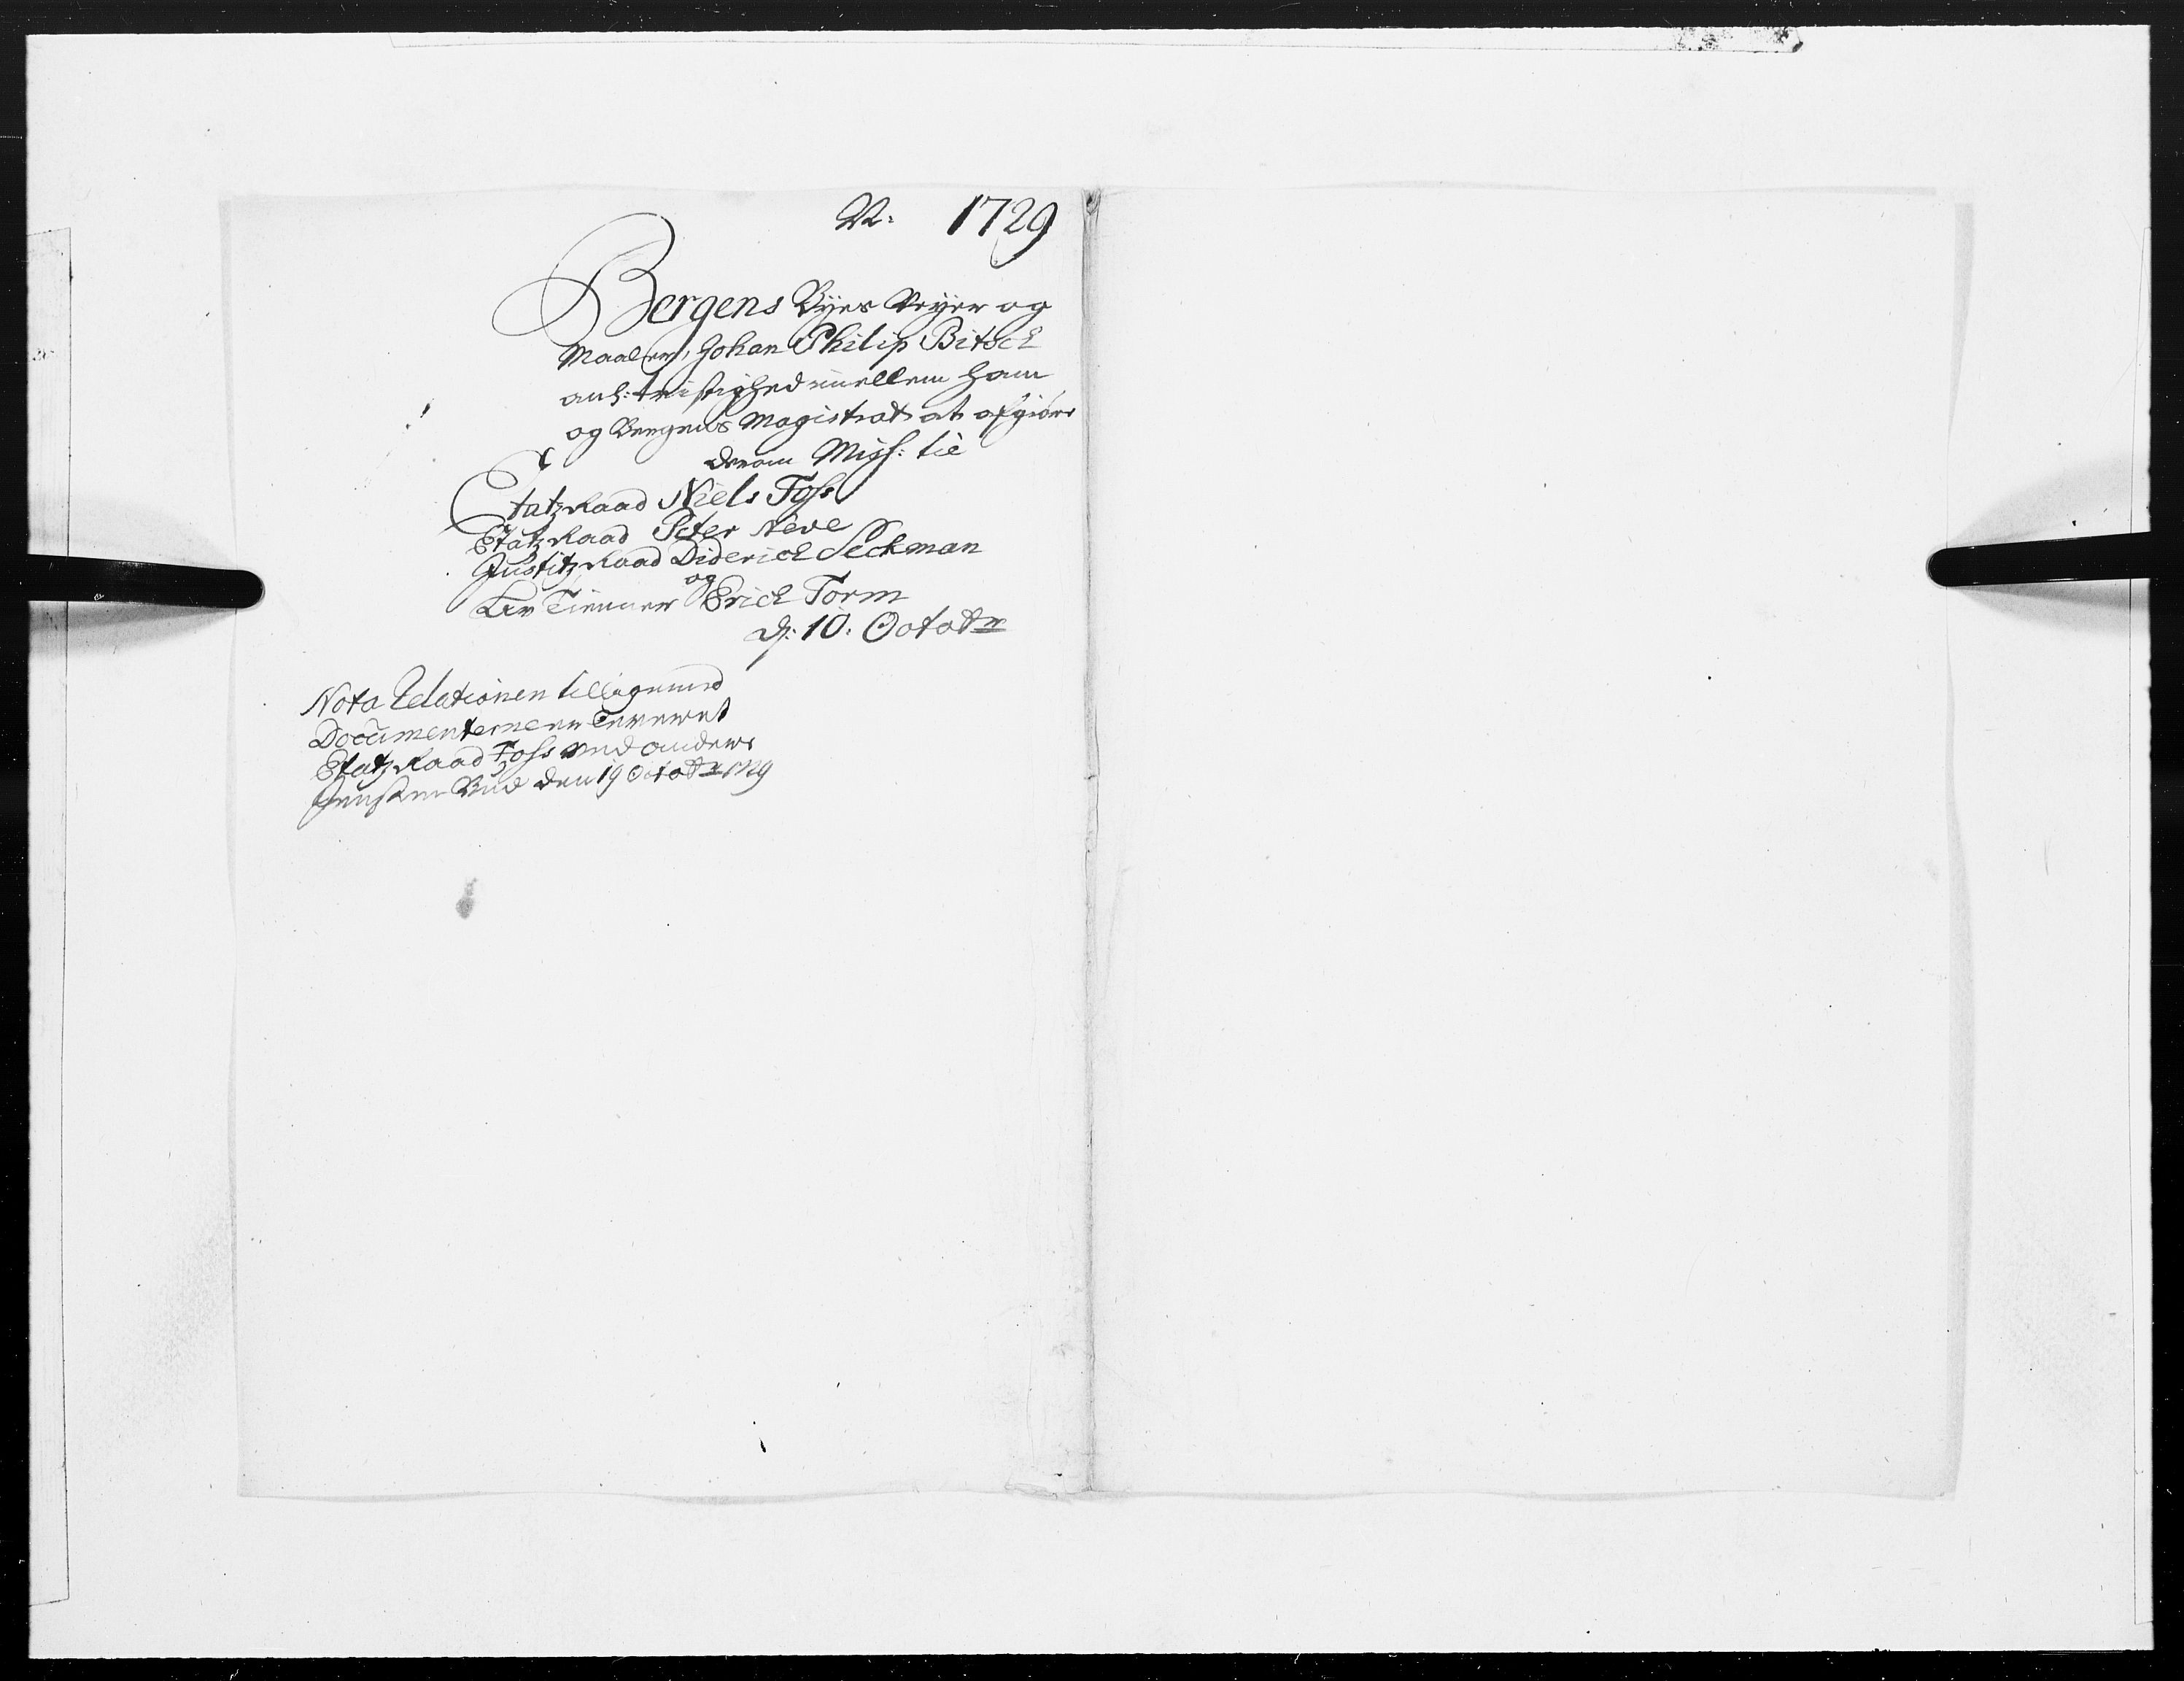 N: 1729
Bergens Byes Veyer og
Maaler, Johan Philip Bitsch
anl: tvistighed imellem ham
og Bergens Magistrat at afgiøre
derom Miss: til
Etatz Raad Niels Foss
Etatz Raad Peter Neve
Justitz Raad Diderich Seckman
og
Erich Torm
d: 10: Octobr
Nota Relationen tilligemed
Documenterne er leveret
Etatz Raad Foss ved
Bud den 19 Octobr 1729